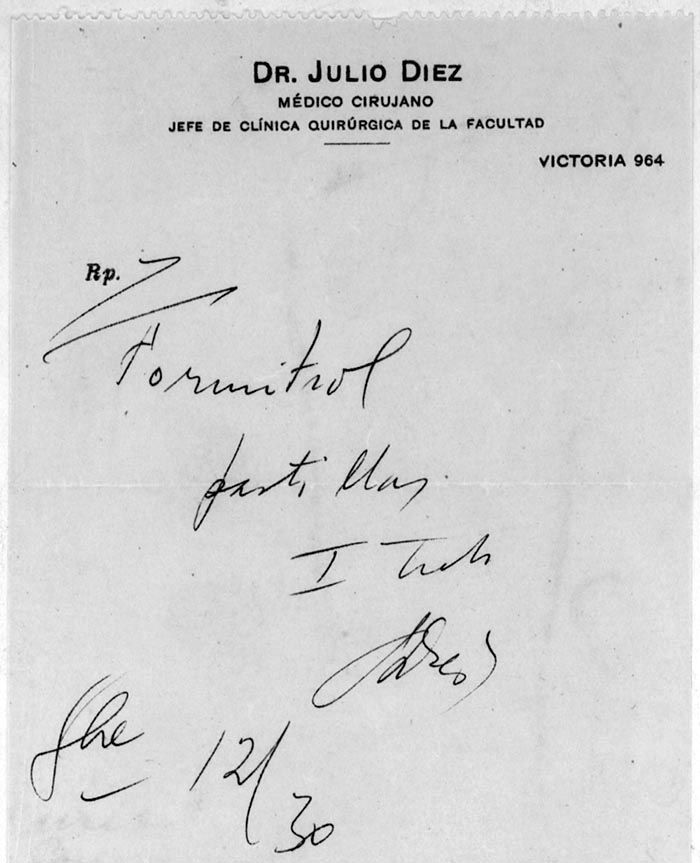 DR. JULIO DIEZ
MÉDICO CIRUJANO
JEFE DE CLÍNICA QUIRÚRGICA DE LA FACULTAD
VICTORIA 964
Rp.
Formitrol
pastillas
I
12/30